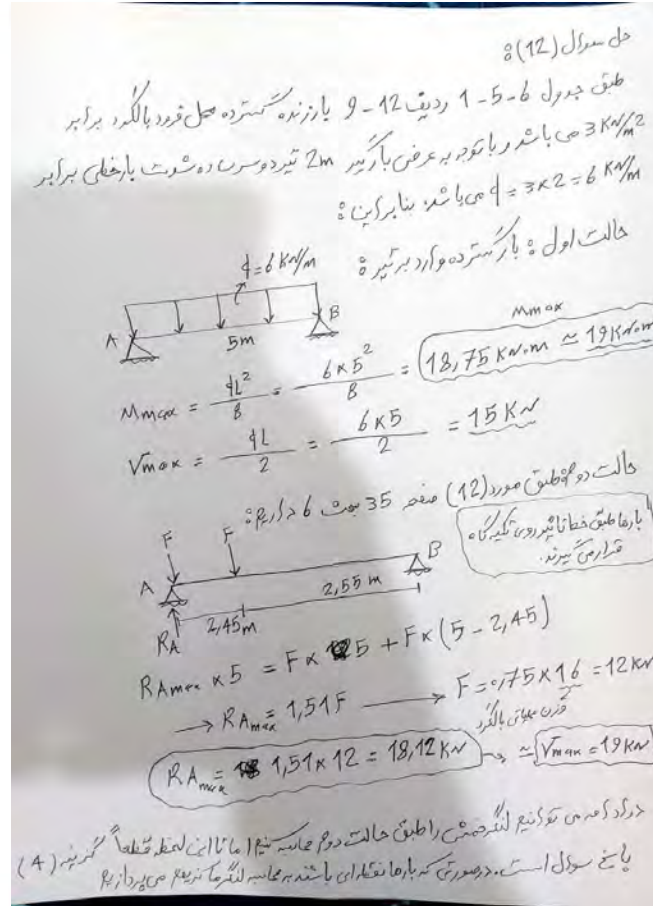 حل سوال (12):
طبق جدول 6-5-1 ردیف 12-9 بار زنده گسترده محل فرود بالگرد برابر
3 KN/m² می باشد و با توجه به عرض بارگیر 2m تیر دوسر ساده شدت بار خطی برابر
q = 3×2 = 6 KN/m می باشد. بنابراین:
حالت اول: بار گسترده وارد بر تیر:
q = 6 KN/m
A B
5m
Mmax
Mmax = qL²/8 = 6×5²/8 = 18,75 KN.m ≃ 19 KN.m
Vmax = qL/2 = 6×5/2 = 15 KN
حالت دوم: طبق مورد (12) صفحه 35 مبحث 6 داریم:
بارها طبق خط تاثیر روی تکیه گاه
قرار می گیرند.
F F
A B
2,45m 2,55 m
RA
RAmax × 5 = F × 5 + F × (5 - 2,45)
→ RAmax = 1,51F → F = 0,75 × 16/2 = 12 KN
وزن مبنای بالگرد
RAmax = 1,51 × 12 = 18,12 KN → ≃ Vmax = 19 KN
در ادامه می توانیم لنگر خمشی را طبق حالت دوم محاسبه کنیم اما تا این لحظه قطعاً گزینه (4)
پاسخ سوال است. در صورتی که بارها نقطه ای باشند به محاسبه لنگر ماکزیمم می پردازیم